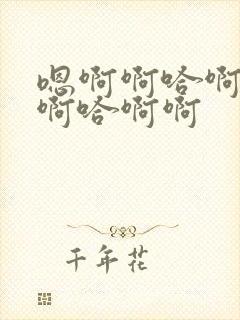 嗯啊啊哈啊
啊哈啊啊
千年花